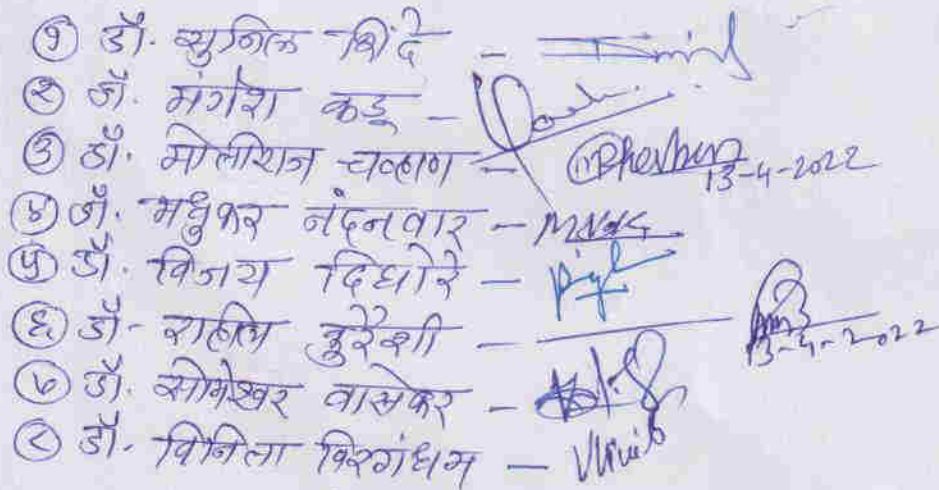 १ डॉ. सुनिल शिंदे -
२ डॉ. मंगेश कडू -
३ डॉ. मोतीराज चव्हाण - 13-4-2022
४ डॉ. मधुकर नंदनवार -
५ डॉ. विजय दिघोरे -
६ डॉ - राहील कुरेशी - 13-4-2022
७ डॉ. सोमेश्वर वासेकर -
८ डॉ. विनिता विरगंधम -